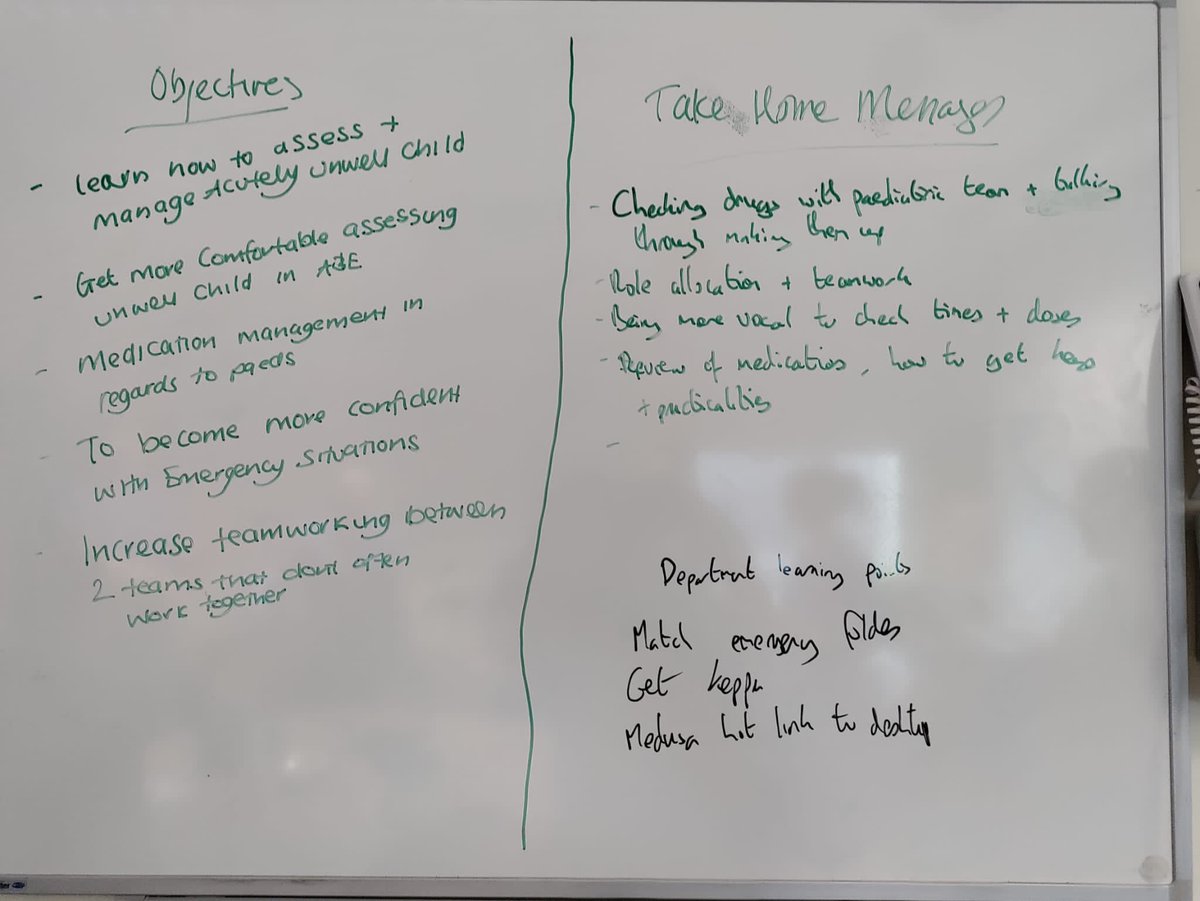 Objectives
- learn how to assess +
manage Acutely unwell child
- Get more comfortable assessing
unwell child in A&E
- Medication management in
regards to paeds
- To become more confident
with Emergency situations
- Increase teamworking between
2 teams that don't often
work together
Take Home Messages
- Checking drugs with paediatric team + talking
through making them up
- Role allocation + teamwork
- Being more vocal to check times + doses
- Review of medications, how to get
+ practicalities
-
Department learning points
Match emergency folders
Get keppra
Medusa hot link to desktop